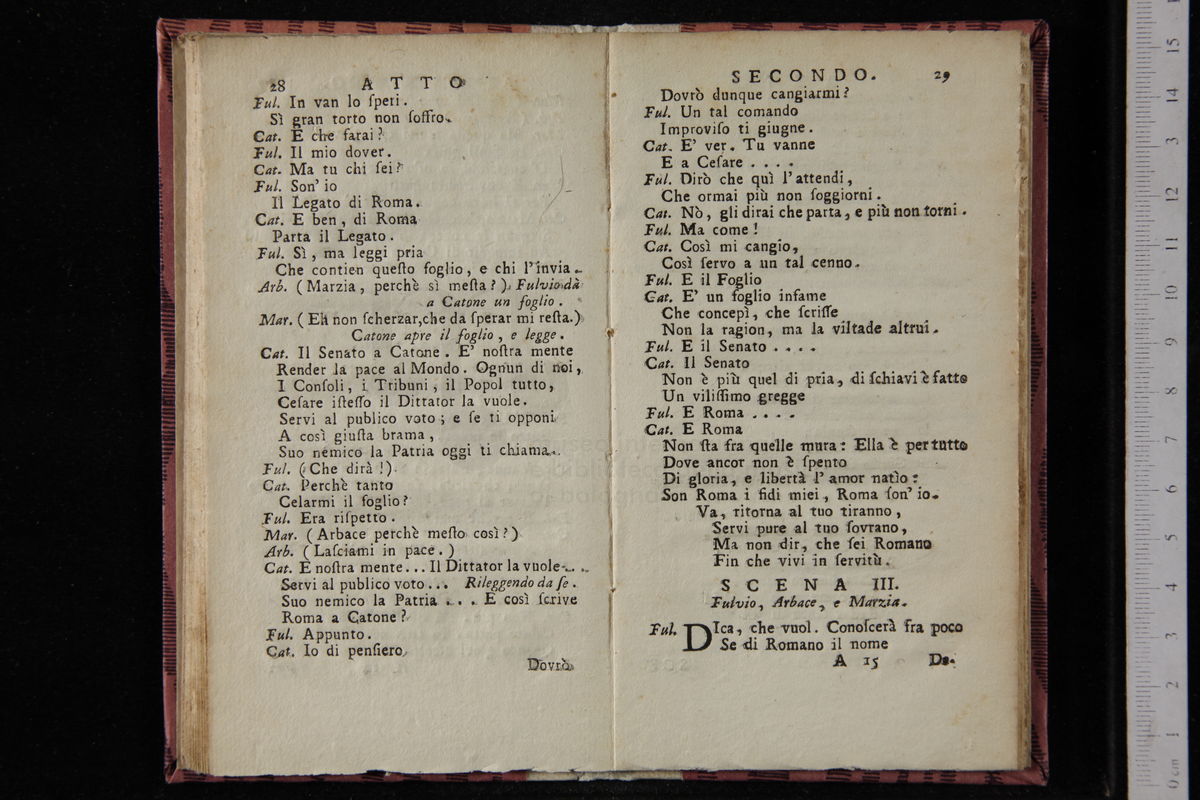 28 ATTO
Ful. In van lo ſperi.
Sì gran torto non ſoffro.
Cat. E che farai?
Ful. Il mio dover.
Cat. Ma tu chi ſei?
Ful. Son' io
Il Legato di Roma.
Cat. E ben, di Roma
Parta il Legato.
Ful. Sì, ma leggi pria
Che contien queſto foglio, e chi l'invia.
Arb. (Marzia, perchè sì meſta?) Fulvio dà
a Catone un foglio.
Mar. (Eh non ſcherzar, che da ſperar mi reſta.)
Catone apre il foglio, e legge.
Cat. Il Senato a Catone. E' noſtra mente
Render la pace al Mondo. Ognun di noi,
I Conſoli, i Tribuni, il Popol tutto,
Ceſare iſteſſo il Dittator la vuole.
Servi al publico voto; e ſe ti opponi
A così giuſta brama,
Suo nemico la Patria oggi ti chiama.
Ful. (Che dirà!)
Cat. Perchè tanto
Celarmi il foglio?
Ful. Era riſpetto.
Mar. (Arbace perchè meſto così?)
Arb. (Laſciami in pace.)
Cat. E noſtra mente... Il Dittator la vuole...
Servi al publico voto... Rileggendo da ſe.
Suo nemico la Patria.... E così ſcrive
Roma a Catone?
Ful. Appunto.
Cat. Io di penſiero
Dovrò
SECONDO. 29
Dovrò dunque cangiarmi?
Ful. Un tal comando
Improviſo ti giugne.
Cat. E' ver. Tu vanne
E a Ceſare....
Ful. Dirò che quì l'attendi,
Che ormai più non ſoggiorni.
Cat. Nò, gli dirai che parta, e più non torni.
Ful. Ma come!
Cat. Così mi cangio,
Così ſervo a un tal cenno.
Ful. E il Foglio
Cat. E' un foglio infame
Che concepì, che ſcriſſe
Non la ragion, ma la viltade altrui.
Ful. E il Senato....
Cat. Il Senato
Non è più quel di pria, di ſchiavi è fatto
Un viliſſimo gregge
Ful. E Roma....
Cat. E Roma
Non ſta fra quelle mura: Ella è per tutto
Dove ancor non è ſpento
Di gloria, e libertà l'amor natìo:
Son Roma i fidi miei, Roma ſon' io.
Va, ritorna al tuo tiranno,
Servi pure al tuo ſovrano,
Ma non dir, che ſei Romano
Fin che vivi in ſervitù.
SCENA III.
Fulvio, Arbace, e Marzia.
Ful. DIca, che vuol. Conoſcerà fra poco
Se di Romano il nome
A 15 De-
0 cm 1 2 3 4 5 6 7 8 9 10 11 12 13 14 15